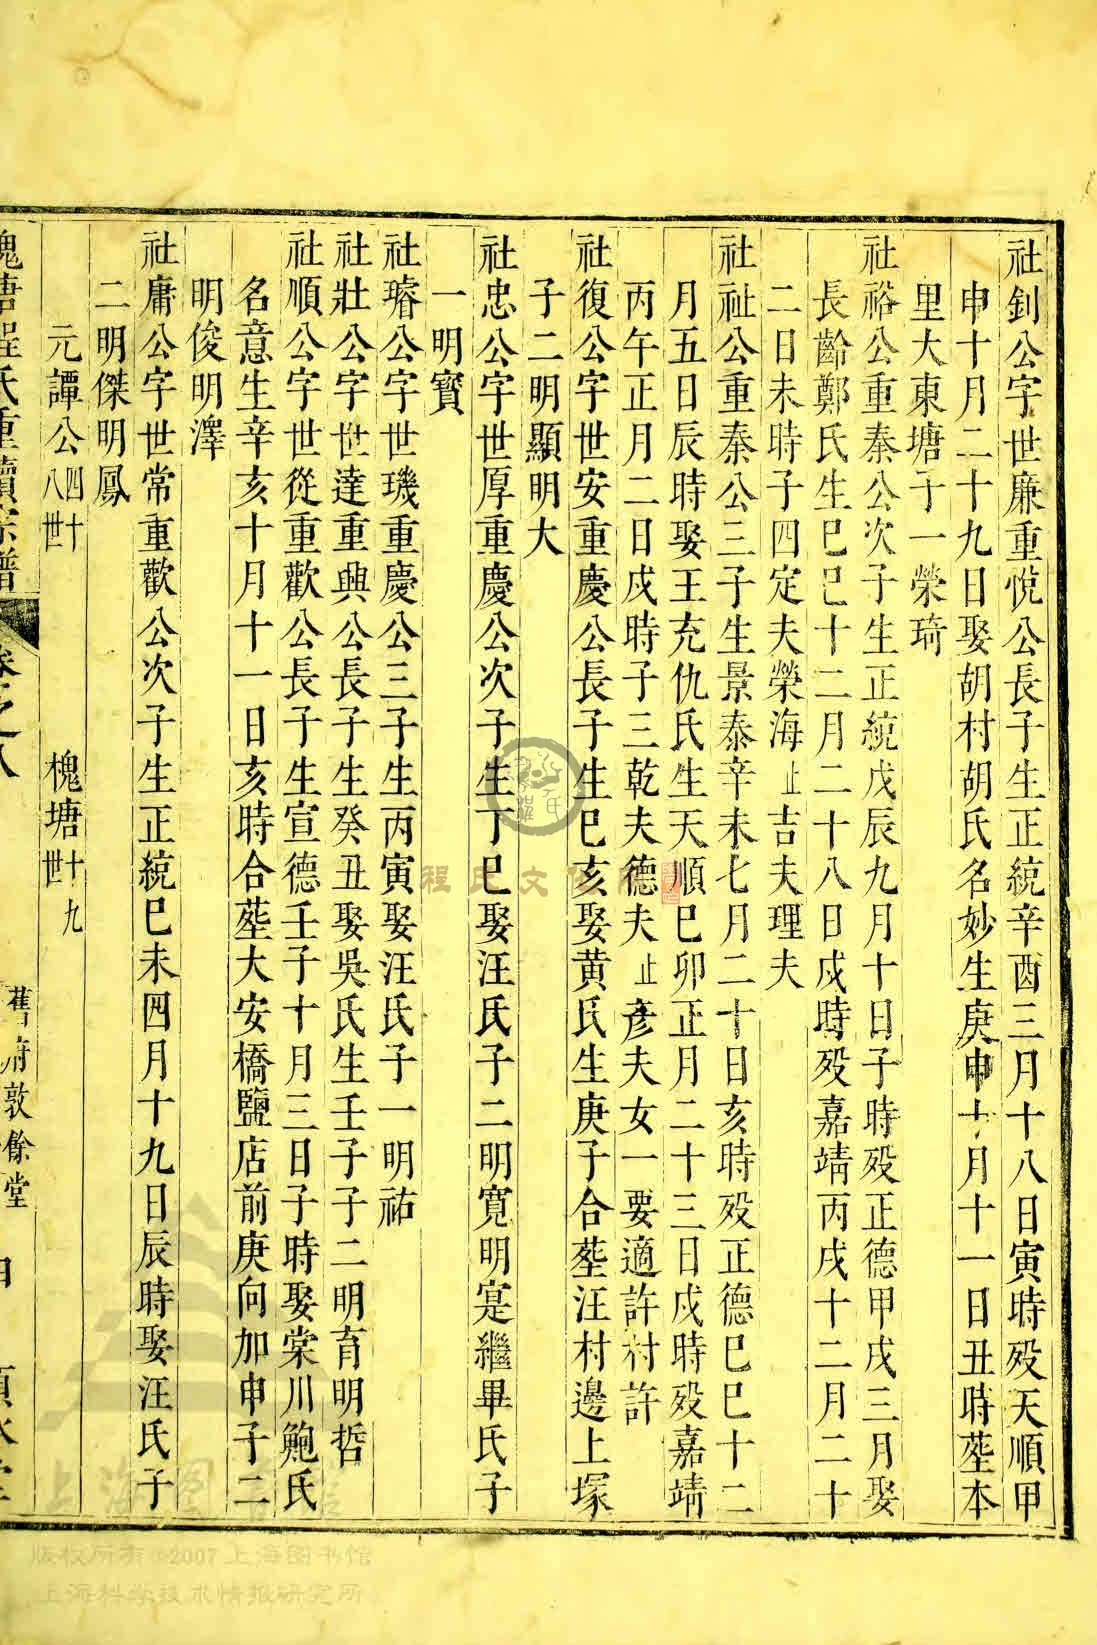 社釗公字世廉重悅公長子生正統辛酉三月十八日寅時歿天順甲
申十月二十九日娶胡村胡氏名妙生庚申十月十一日丑時塟本
里大東塘子一榮琦
社裕公重秦公次子生正統戊辰九月十日子時歿正德甲戌三月娶
長齡鄭氏生巳巳十二月二十八日戌時歿嘉靖丙戌十二月二十
二日未時子四定夫榮海止吉夫理夫
社祉公重秦公三子生景泰辛未七月二十日亥時歿正德巳巳十二
月五日辰時娶王充仇氏生天順巳卯正月二十三日戌時歿嘉靖
丙午正月二日戌時子三乾夫德夫止彥夫女一要適許村許
社復公字世安重慶公長子生巳亥娶黄氏生庚子合塟汪村邊上塚
子二明顯明大
社忠公字世厚重慶公次子生丁巳娶汪氏子二明寛明寔繼畢氏子
一明寳
社璿公字世璣重慶公三子生丙寅娶汪氏子一明祐
社壯公字世達重興公長子生癸丑娶吳氏生壬子子二明育明哲
社順公字世從重歡公長子生宣德壬子十月三日子時娶棠川鮑氏
名意生辛亥十月十一日亥時合塟大安橋鹽店前庚向加申子二
明俊明澤
社庸公字世常重歡公次子生正統巳未四月十九日辰時娶汪氏子
二明傑明鳳
元譚公四十八世 槐塘十九世
槐塘程氏重續宗譜 卷之八 舊府敦餘堂
程氏文化
上海图
版权所有©2007上海图书馆
上海科学技术情报研究所